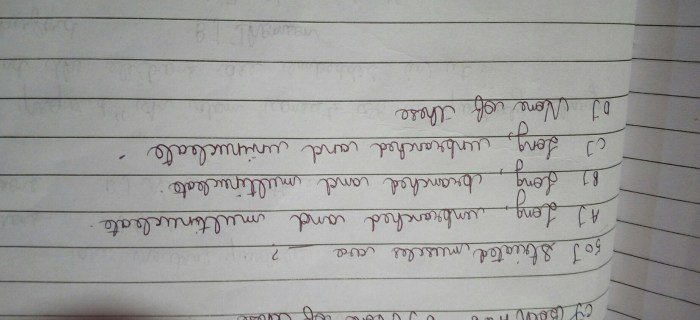 50] Striated muscles are — ?
A] Long, unbranched and multinucleate.
B] Long, branched and multinucleate.
C] Long, unbranched and uninucleate.
D] None of these